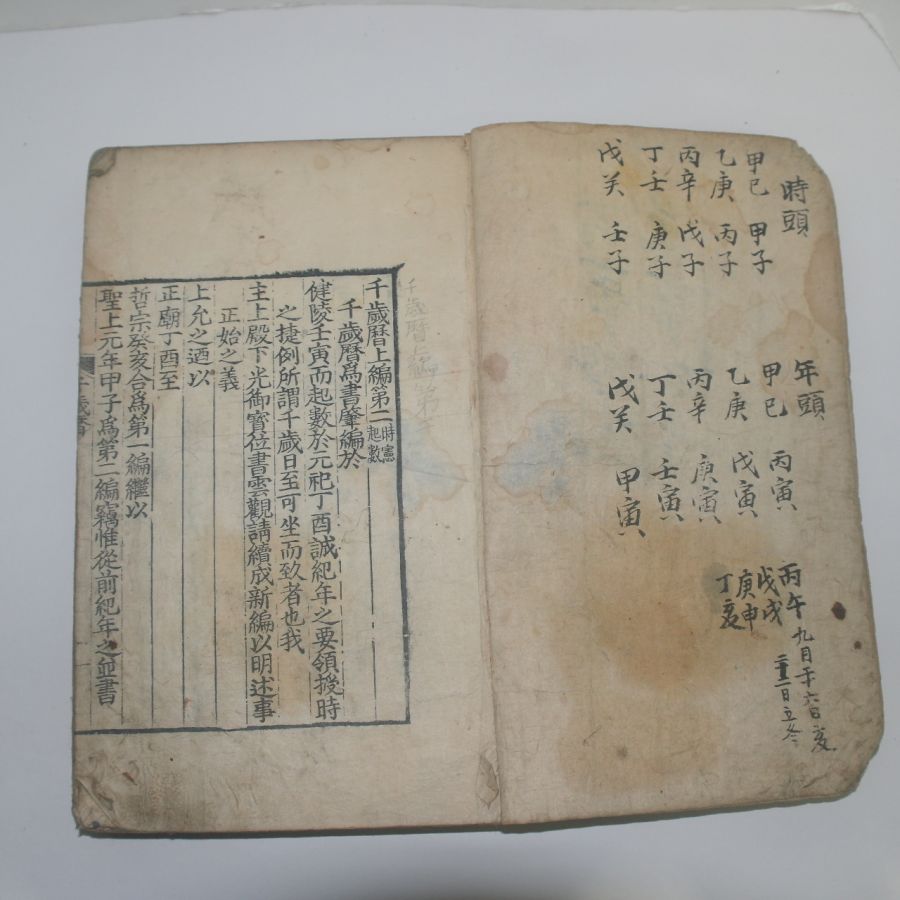 時頭
甲己 甲子
乙庚 丙子
丙辛 戊子
丁壬 庚子
戊癸 壬子
年頭
甲己 丙寅
乙庚 戊寅
丙辛 庚寅
丁壬 壬寅
戊癸 甲寅
丙午
戊戌
庚申
丁亥
九月 六日 亥
一日立冬
千歲曆上編第二 時憲起數
千歲曆爲書肇編於
健陵壬寅而起數於元祀丁酉誠紀年之要領授時
之捷例所謂千歲日至可坐而致者也我
主上殿下光御寶位書雲觀請續成新編以明述事
正始之義
上允之迺以
正廟丁酉至
哲宗癸亥合爲第一編繼以
聖上元年甲子爲第二編竊惟從前紀年之並書
千歲曆